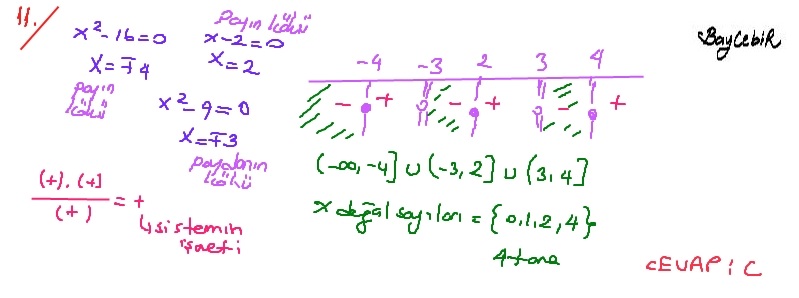 11.
x²-16=0
x=∓4
payın kökü
payın kökü
x-2=0
x=2
x²-9=0
x=∓3
paydanın kökü
BayCebiR
-4 -3 2 3 4
- + - + - +
(-∞,-4] ∪ (-3,2] ∪ (3,4]
(+).(+)/(+) = +
↳sistemin işareti
x doğal sayıları = {0,1,2,4}
4 tane
CEVAP: C